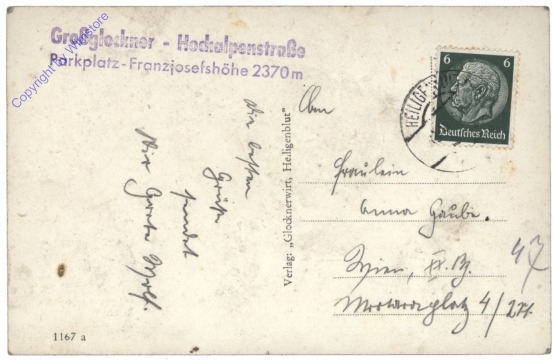 Großglockner - Hochalpenstraße
Parkplatz-Franzjosefshöhe 2370m
Copyright by Wienstore
6 6
Deutsches Reich
HEILIGE
Die besten
Grüße
sendet
Grete
Verlag: „Glocknerwirt, Heiligenblut"
Fräulein
Anna Gaube.
Wien, IX. Bz.
4/24
47
1167 a